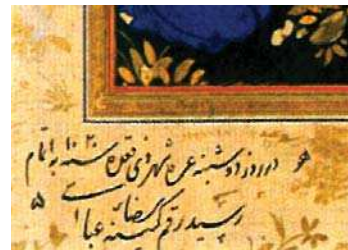 هو در روز دوشنبه غره شهر ذی قعده سنه به اتمام
رسید رقم کمینه رضای عباسی